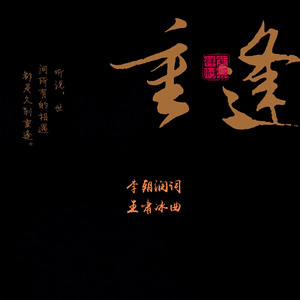 重逢
听说，世
间所有的相遇
都是久别重逢。
李朝润词
王啸冰曲